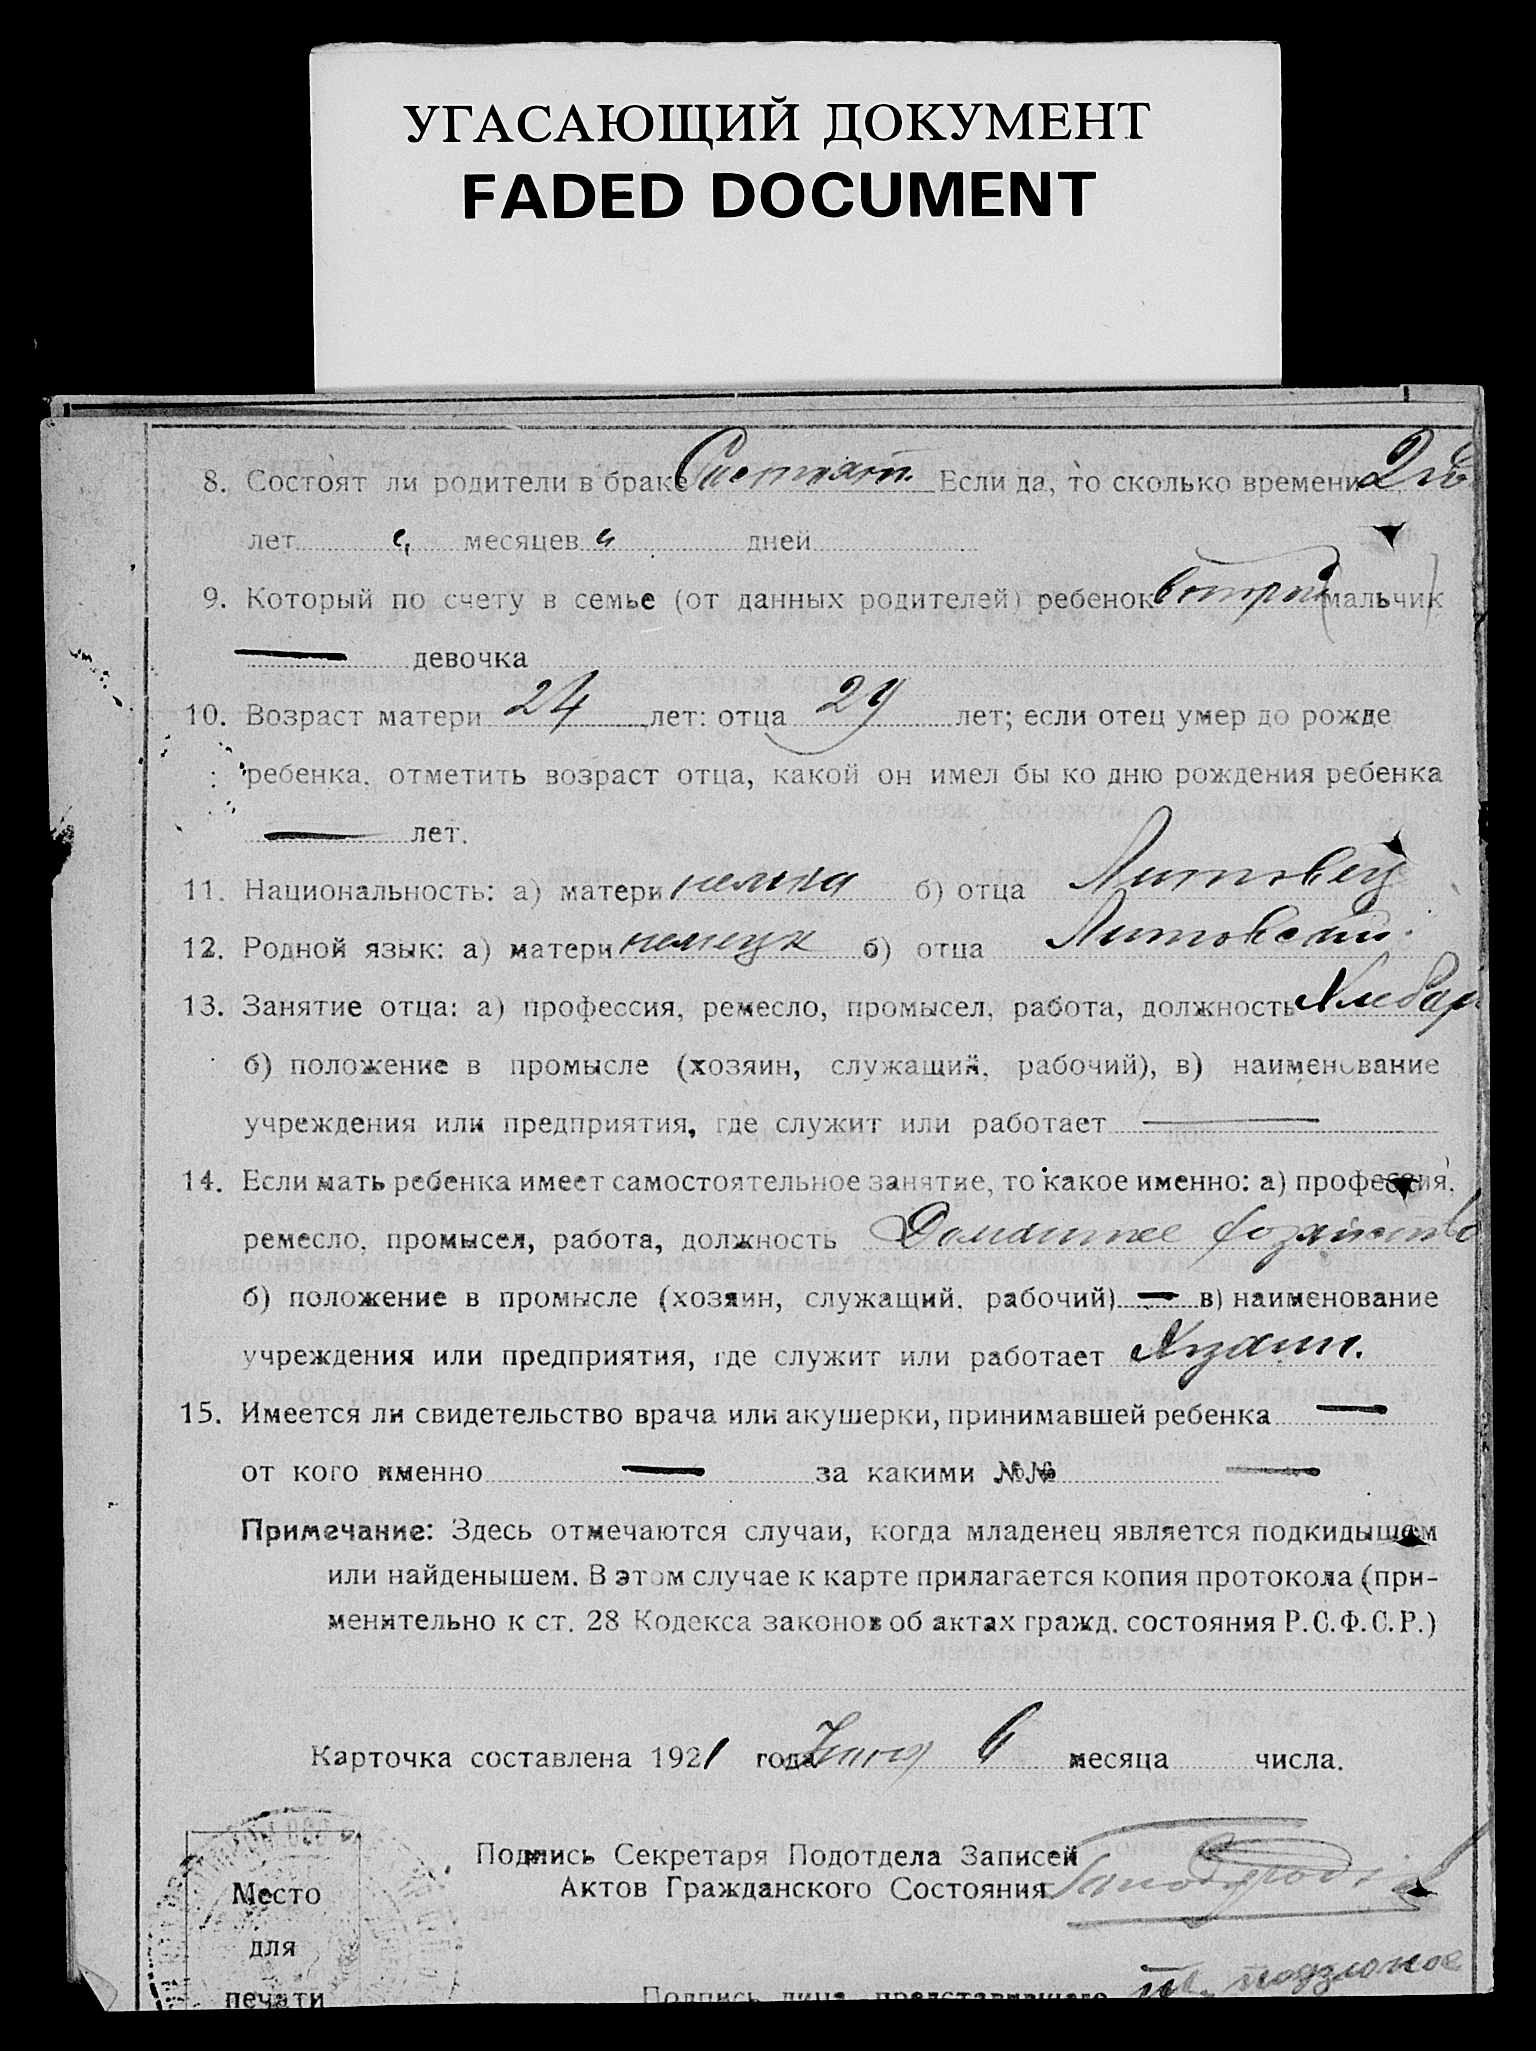 УГАСАЮЩИЙ ДОКУМЕНТ
FADED DOCUMENT
8. Состоят ли родители в браке Состоят. Если да, то сколько времени 2
лет месяцев дней
9. Который по счету в семье (от данных родителей) ребенок второй (мальчик)
— девочка
10. Возраст матери 24 лет: отца 29 лет; если отец умер до рожде
ребенка, отметить возраст отца, какой он имел бы ко дню рождения ребенка
— лет.
11. Национальность: а) матери немка б) отца Литовец
12. Родной язык: а) матери немецк б) отца Литовский.
13. Занятие отца: а) профессия, ремесло, промысел, работа, должность Хлебар
б) положение в промысле (хозяин, служащий, рабочий), в) наименование
учреждения или предприятия, где служит или работает —
14. Если мать ребенка имеет самостоятельное занятие, то какое именно: а) профессия,
ремесло, промысел, работа, должность Домашнее хозяйство
б) положение в промысле (хозяин, служащий, рабочий) — в) наименование
учреждения или предприятия, где служит или работает
15. Имеется ли свидетельство врача или акушерки, принимавшей ребенка —
от кого именно — за какими №№ —
Примечание: Здесь отмечаются случаи, когда младенец является подкидышем
или найденышем. В этом случае к карте прилагается копия протокола (при-
менительно к ст. 28 Кодекса законов об актах гражд. состояния Р.С.Ф.С.Р.)
Карточка составлена 1921 года 6 месяца числа.
Подпись Секретаря Подотдела Записей
Актов Гражданского Состояния
Место
для
печати
Подпись лица, представившего